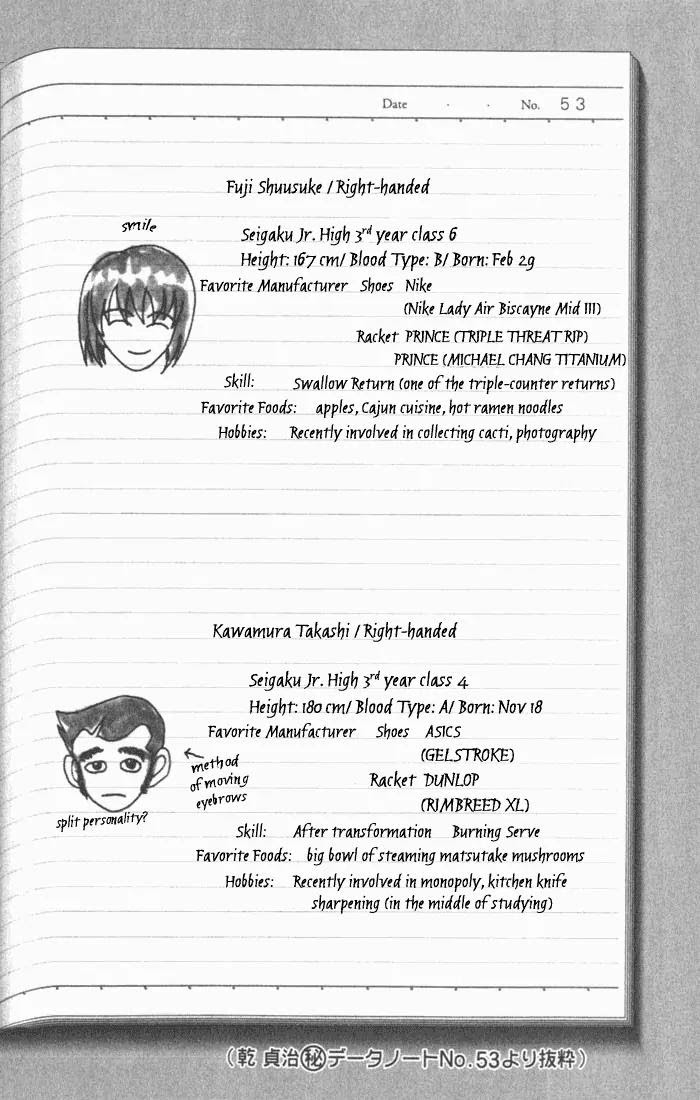 Date . . No. 53
Fuji Shuusuke / Right-handed
smile
Seigaku Jr. High 3rd year class 6
Height: 167 cm/ Blood Type: B/ Born: Feb 29
Favorite Manufacturer Shoes Nike
(Nike Lady Air Biscayne Mid III)
Racket PRINCE (TRIPLE THREAT RIP)
PRINCE (MICHAEL CHANG TITANIUM)
Skill: Swallow Return (one of the triple-counter returns)
Favorite Foods: apples, Cajun cuisine, hot ramen noodles
Hobbies: Recently involved in collecting cacti, photography
Kawamura Takashi / Right-handed
Seigaku Jr. High 3rd year class 4
Height: 180 cm/ Blood Type: A/ Born: Nov 18
Favorite Manufacturer Shoes ASICS
(GELSTROKE)
Racket DUNLOP
(RIMBREED XL)
method
of moving
eyebrows
split personality?
Skill: After transformation Burning Serve
Favorite Foods: big bowl of steaming matsutake mushrooms
Hobbies: Recently involved in monopoly, kitchen knife
sharpening (in the middle of studying)
(乾 貞治㊙データノートNo.53より抜粋)